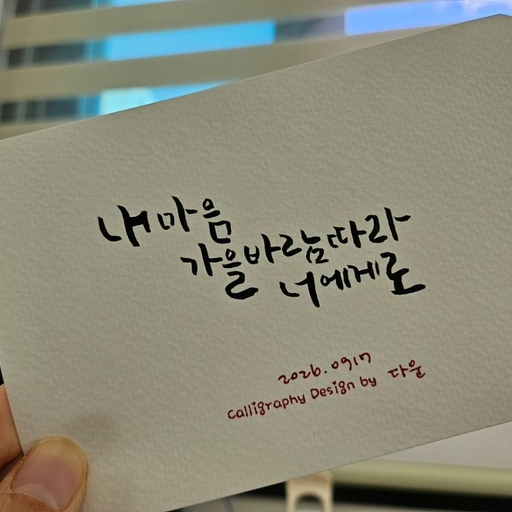 내 마음
가을바람따라
너에게로
2026.0917
Calligraphy Design by 다운